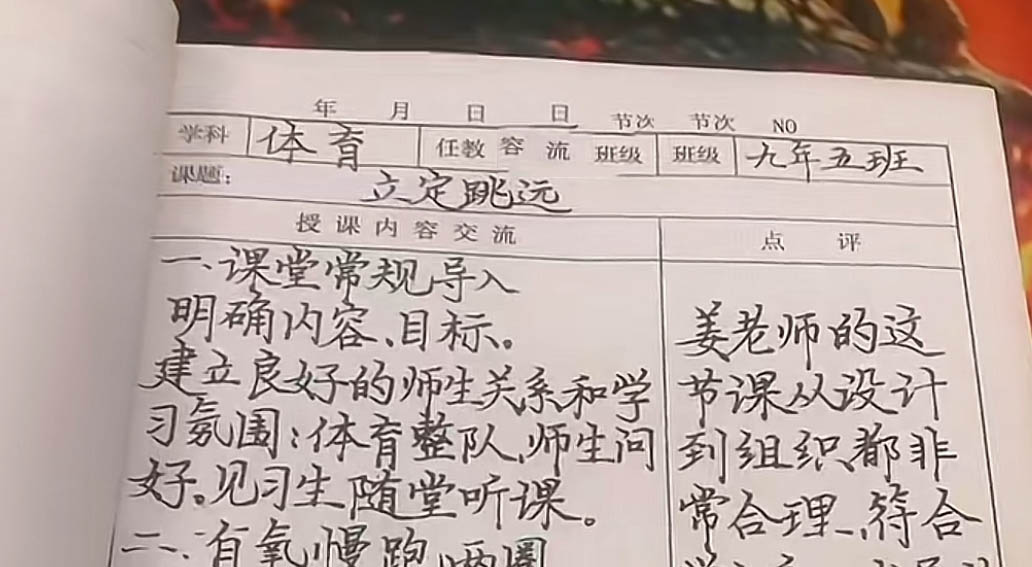 年 月 日 日 节次 节次 NO
学科 体育 任教 容 流 班级 班级 九年五班
课题: 立定跳远
授课内容交流 点 评
一、课堂常规导入
明确内容、目标。
建立良好的师生关系和学
习氛围:体育整队、师生问
好。见习生随堂听课。
二、有氧慢跑两圈
姜老师的这
节课从设计
到组织都非
常合理、符合